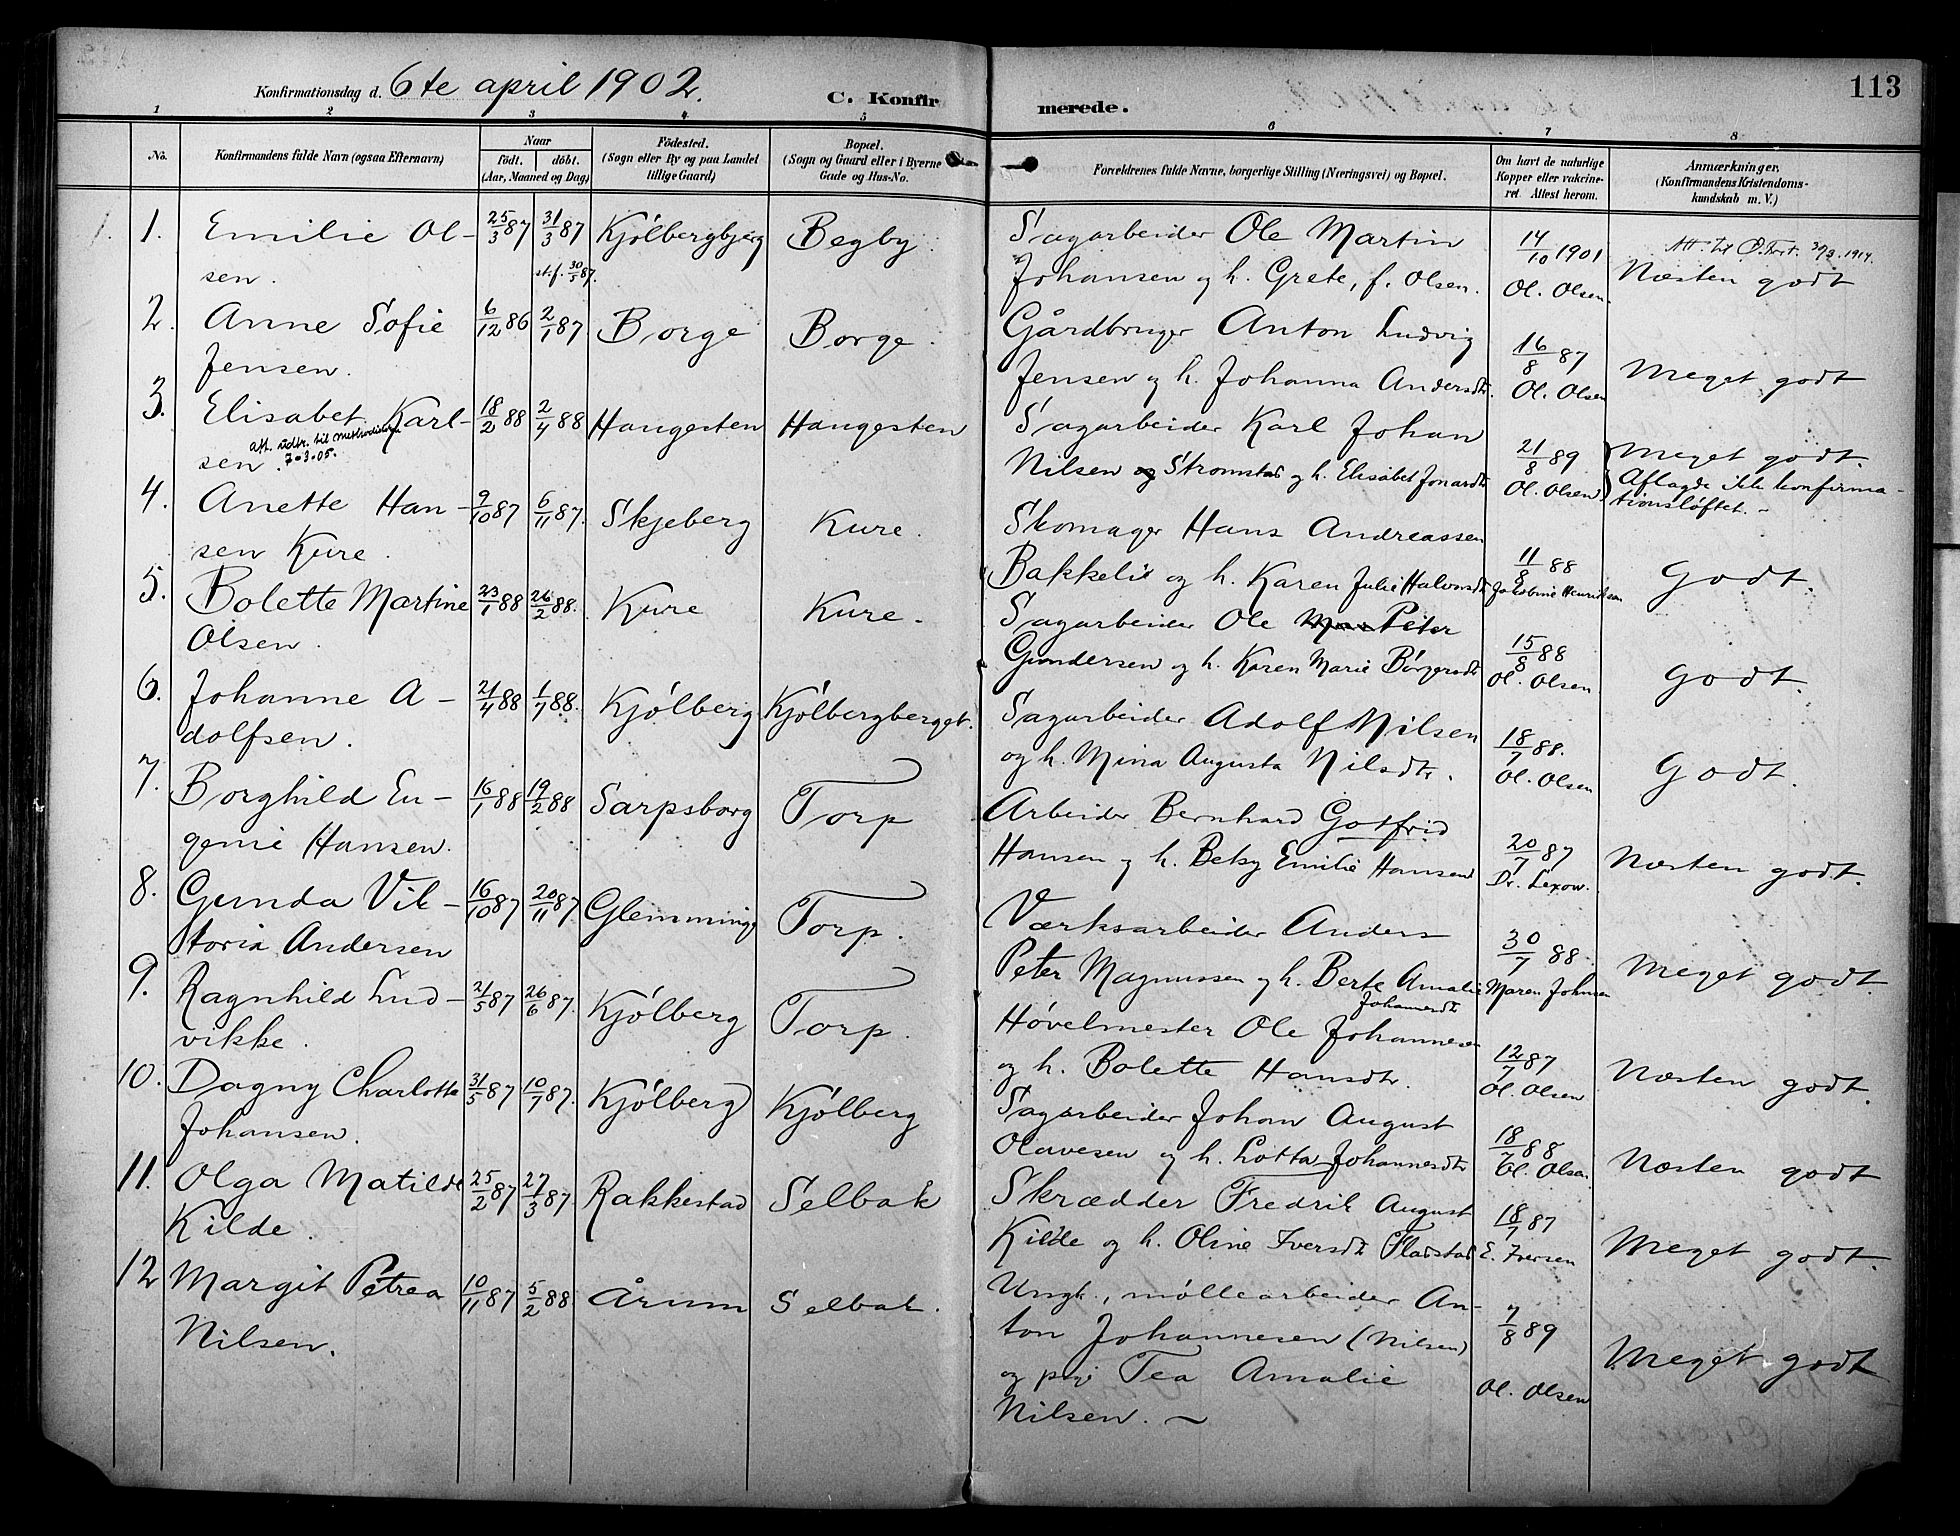 Konfirmationsdag d. 6te april 1902.
C. Konfirmerede.
113
1 2 3 4 5 6 7 8
No.
Konfirmandens fulde Navn (ogsaa Efternavn)
Naar
født. døbt.
(Aar, Maaned og Dag)
Fødested.
(Sogn eller By og paa Landet
tillige Gaard)
Bopæl.
(Sogn og Gaard eller i Byerne
Gade og Hus-No.
Forældrenes fulde Navne, borgerlige Stilling (Næringsvei) og Bopæl.
Om havt de naturlige
Kopper eller vakcine-
ret. Attest herom.
Anmærkninger.
(Konfirmandens Kristendoms-
kundskab m. V.)
1. Emilie Ol- 25/3 87 31/3 87 Kjølbergbjerg Begby. Sagarbeider Ole Martin 14/10 1901
sen. st.f. 30/5 87. Johansen og h. Grete, f. Olsen. Ol. Olsen. Næsten godt
2. Anne Sofie 6/12 86 2/1 87 Borge Borge. Gårdbruger Anton Ludvig 16/8 87
Jensen. Jensen og h. Johanna Andersdtr. Ol. Olsen Meget godt
3. Elisabet Karl- 18/2 88 2/4 88 Haugesten Haugesten Sagarbeider Karl Johan 21/8 89 Meget godt.
att. udtr. til methodistern
7-3-05.
sen. Nilsen og Strømstad og h. Elisabet Jonasdtr Ol. Olsen Aflagde ikke konfirma-
tionsløftet. -
4. Anette Han- 9/10 87 6/11 87. Skjeberg Kure. Skomager Hans Andreassen 11/8 88
sen Kure. Bakkelie og h. Karen Julie Halvorsdtr Jakobine Henriksen Godt.
5. Bolette Martine 23/1 88 26/2 88. Kure Kure. Sagarbeider Ole Peter 15/8 88
Olsen. Gundersen og h. Karen Marie Børgersdtr Ol. Olsen. Godt.
6. Johanne A- 21/4 88 1/7 88. Kjølberg Kjølbergberget. Sagarbeider Adolf Nilsen 18/7 88.
dolfsen. og h. Mina Augusta Nilsdtr. Ol. Olsen Godt.
7. Borghild Eu- 16/1 88 19/2 88 Sarpsborg Torp Arbeider Bernhard Gotfrid 20/7 87
genie Hansen. Hansen og h. Betsy Emilie Hansen Dr. Lexow. Næsten godt.
8. Gunda Vik- 16/10 87 20/11 87 Glemminge Torp. Værksarbeider Anders 30/7 88.
toria Andersen Peter Magnussen og h. Berte Amalie Maren Johnsen Meget godt.
Johannesdtr
9. Ragnhild Lud- 21/5 87 26/6 87. Kjølberg Torp. Høvelmester Ole Johannesen 12/7 87
vikke. og h. Bolette Hansdtr. Ol. Olsen Næsten godt.
10. Dagny Charlotte 31/5 87 10/7 87. Kjølberg Kjølberg Sagarbeider Johan August 18/7 88
Johansen. Olavesen og h. Lotta Johannesdtr Ol. Olsen. Næsten godt
11. Olga Matilde 25/2 87 27/3 87. Rakkestad Selbak Skrædder Fredrik August 18/7 87
Kilde. Kilde og h. Oline Iversdtr Fladstad E. Iversen Meget godt.
12 Margit Petrea 10/11 87 5/2 88. Årum Selbak. Ungk., møllearbeider An- 7/8 89
Nilsen. ton Johannesen (Nilsen) Meget godt
og pige Tea Amalie Ol. Olsen
Nilsen. -